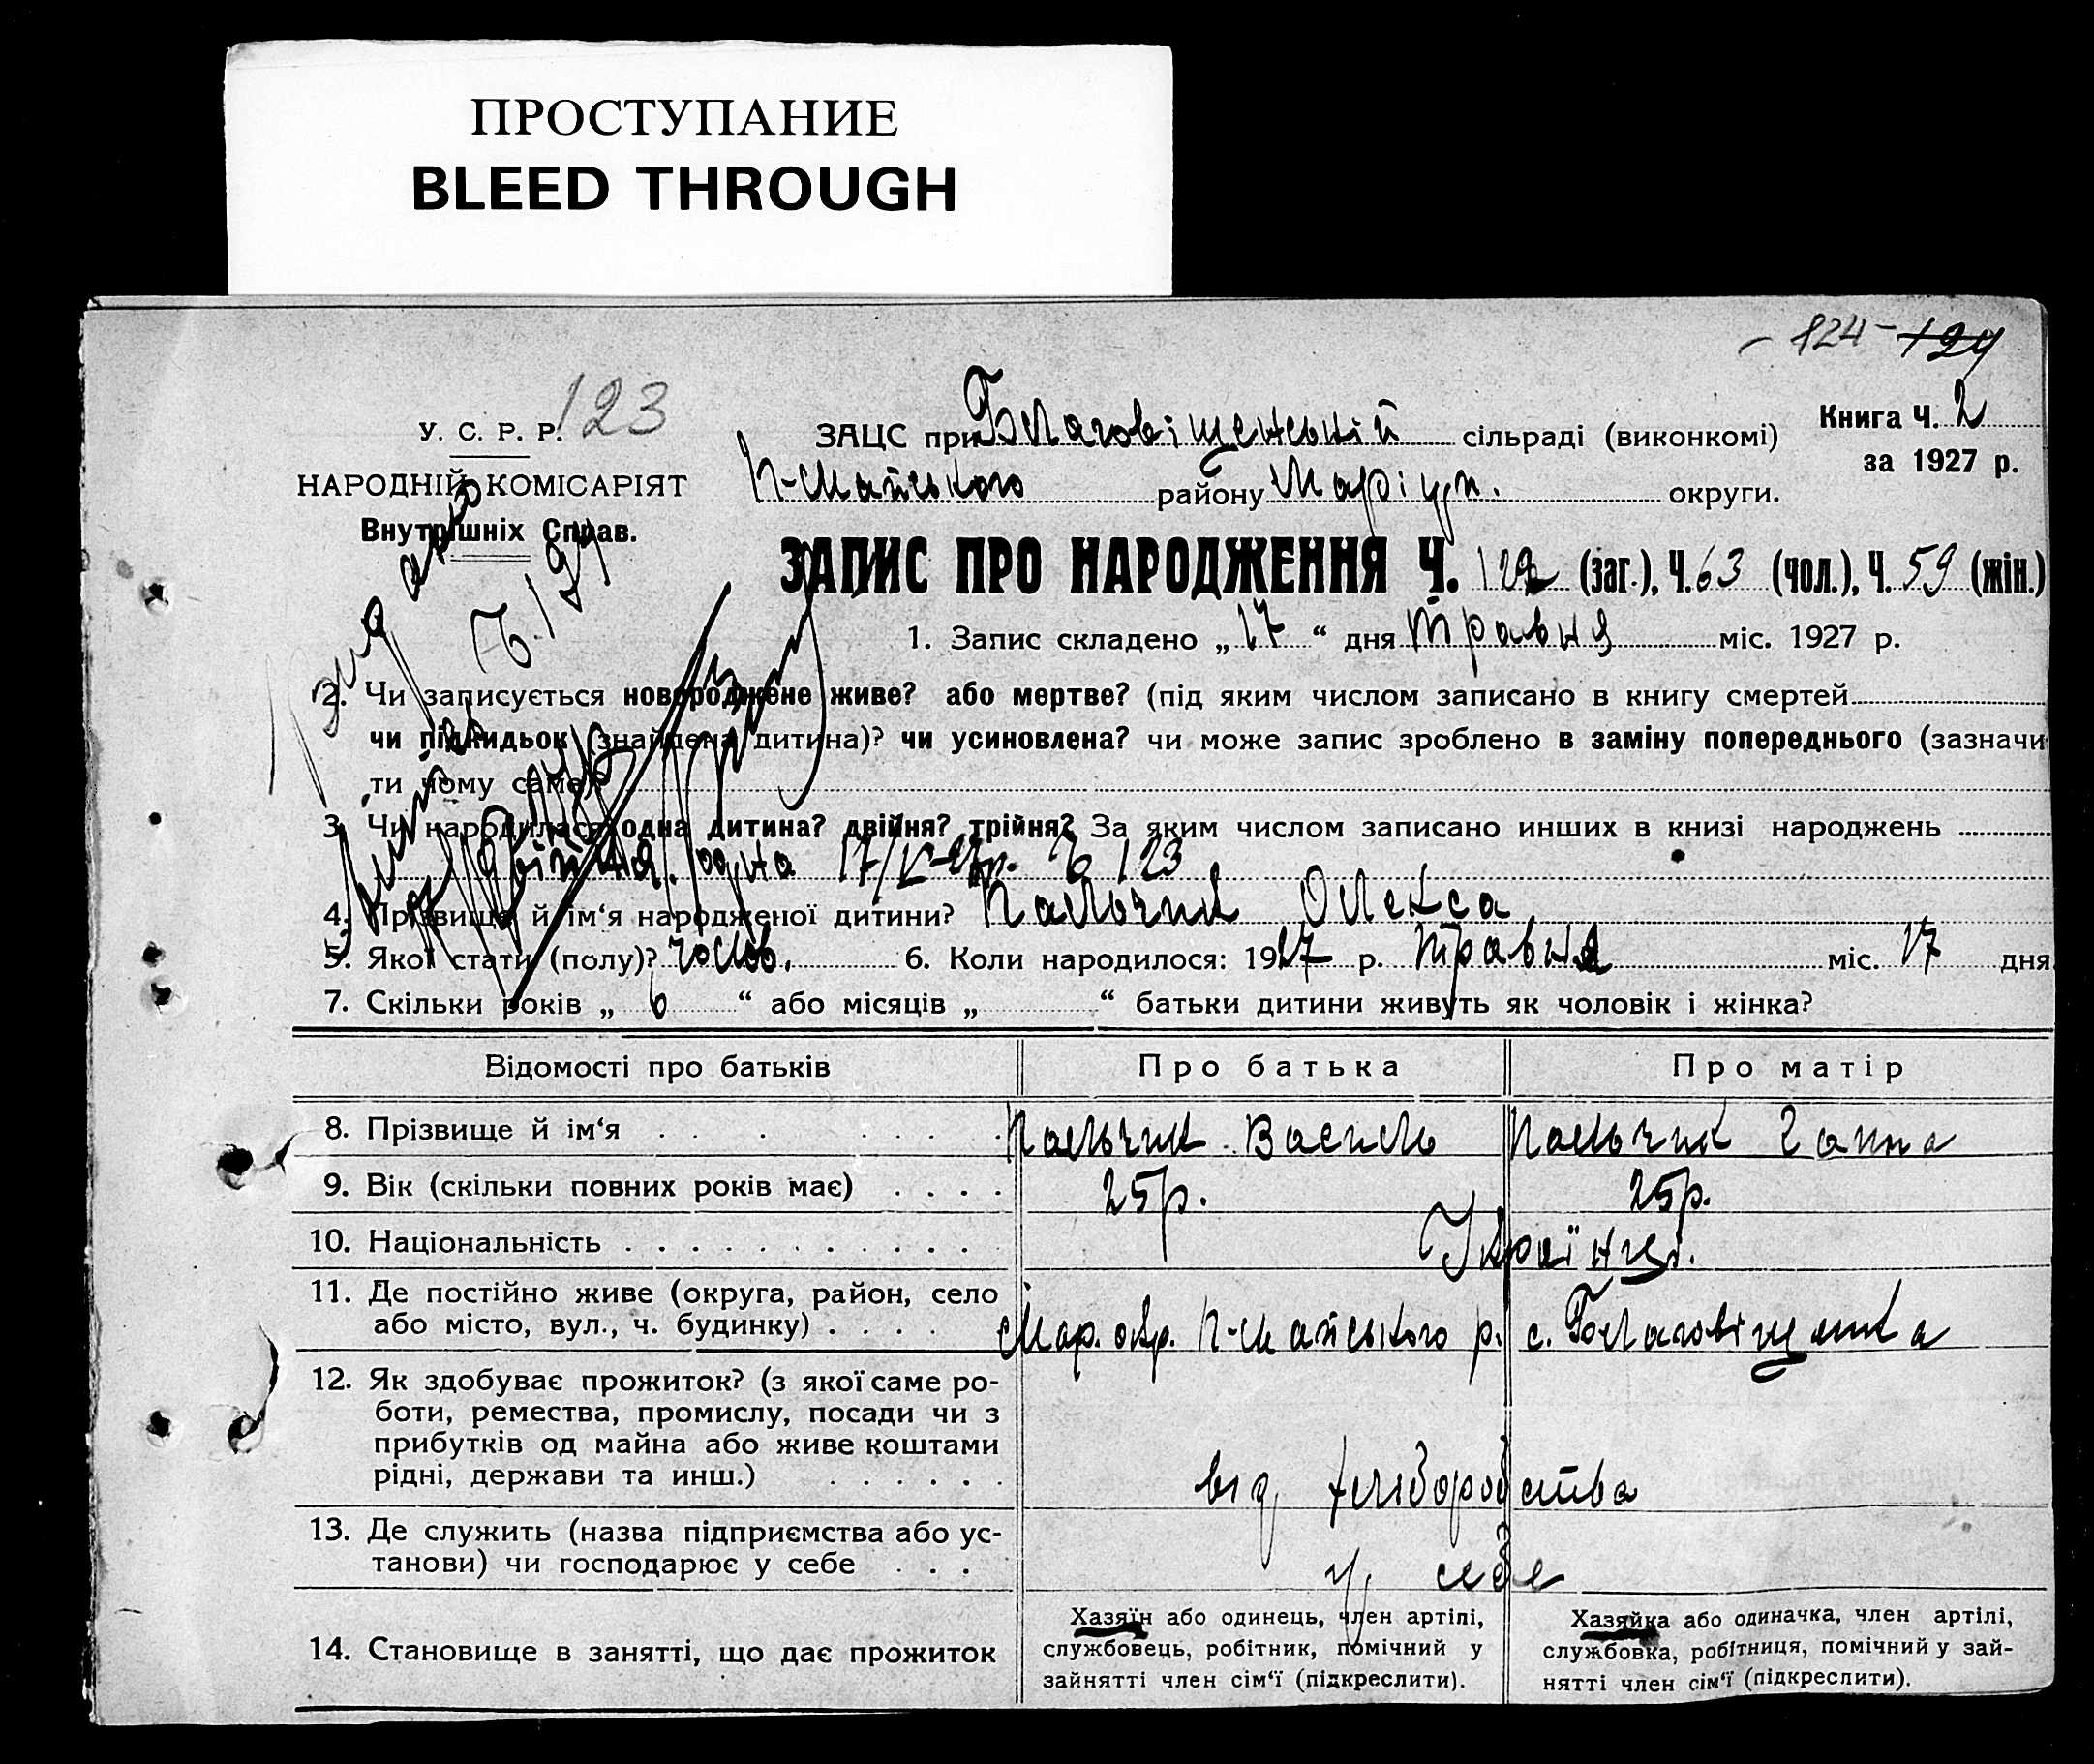 ПРОСТУПАНИЕ
BLEED THROUGH
- 124 - 124
123
У. С. Р. Р.
НАРОДНІЙ КОМІСАРІЯТ
Внутрішніх Справ.
ЗАЦС при Благовіщенській сільраді (виконкомі)
П-Майського району Маріуп. округи.
Книга Ч. 2
за 1927 р.
ЗАПИС ПРО НАРОДЖЕННЯ Ч. 122 (заг.), Ч. 63 (чол.), Ч. 59 (жін.)
1. Запис складено „ 17 “ дня Травня міс. 1927 р.
2. Чи записується новороджене живе? або мертве? (під яким числом записано в книгу смертей
чи підкидьок (знайдена дитина)? чи усиновлена? чи може запис зроблено в заміну попереднього (зазначи
ти чому саме)?
3. Чи народилася одна дитина? двійня? трійня? За яким числом записано инших в книзі народжень
двійня. одна 17/V-27р. № 123
4. Прізвище й ім‘я народженої дитини? Пальчик Олекса
5. Якої стати (полу)? чолов. 6. Коли народилося: 1927 р. Травня міс. 17 дня
7. Скільки років „ 6 “ або місяців „ “ батьки дитини живуть як чоловік і жінка?
Відомості про батьків Про батька Про матір
8. Прізвище й ім‘я . . . . . . . Пальчик Василь Пальчик Ганна
9. Вік (скільки повних років має) . . . . 25р. 25р.
10. Національність . . . . . . . . . . . Українці.
11. Де постійно живе (округа, район, село
або місто, вул., ч. будинку) . . . . Мар. окр. П-Майського р. с. Благовіщенка
12. Як здобуває прожиток? (з якої саме ро-
боти, ремества, промислу, посади чи з
прибутків од майна або живе коштами
рідні, держави та инш.) . . . . . . від хліборобства
13. Де служить (назва підприємства або ус-
танови) чи господарює у себе . . . у себе
14. Становище в занятті, що дає прожиток
Хазяїн або одинець, член артілі,
службовець, робітник, помічний у
зайнятті член сім‘ї (підкреслити).
Хазяйка або одиначка, член артілі,
службовка, робітниця, помічний у зай-
нятті член сім‘ї (підкреслити).